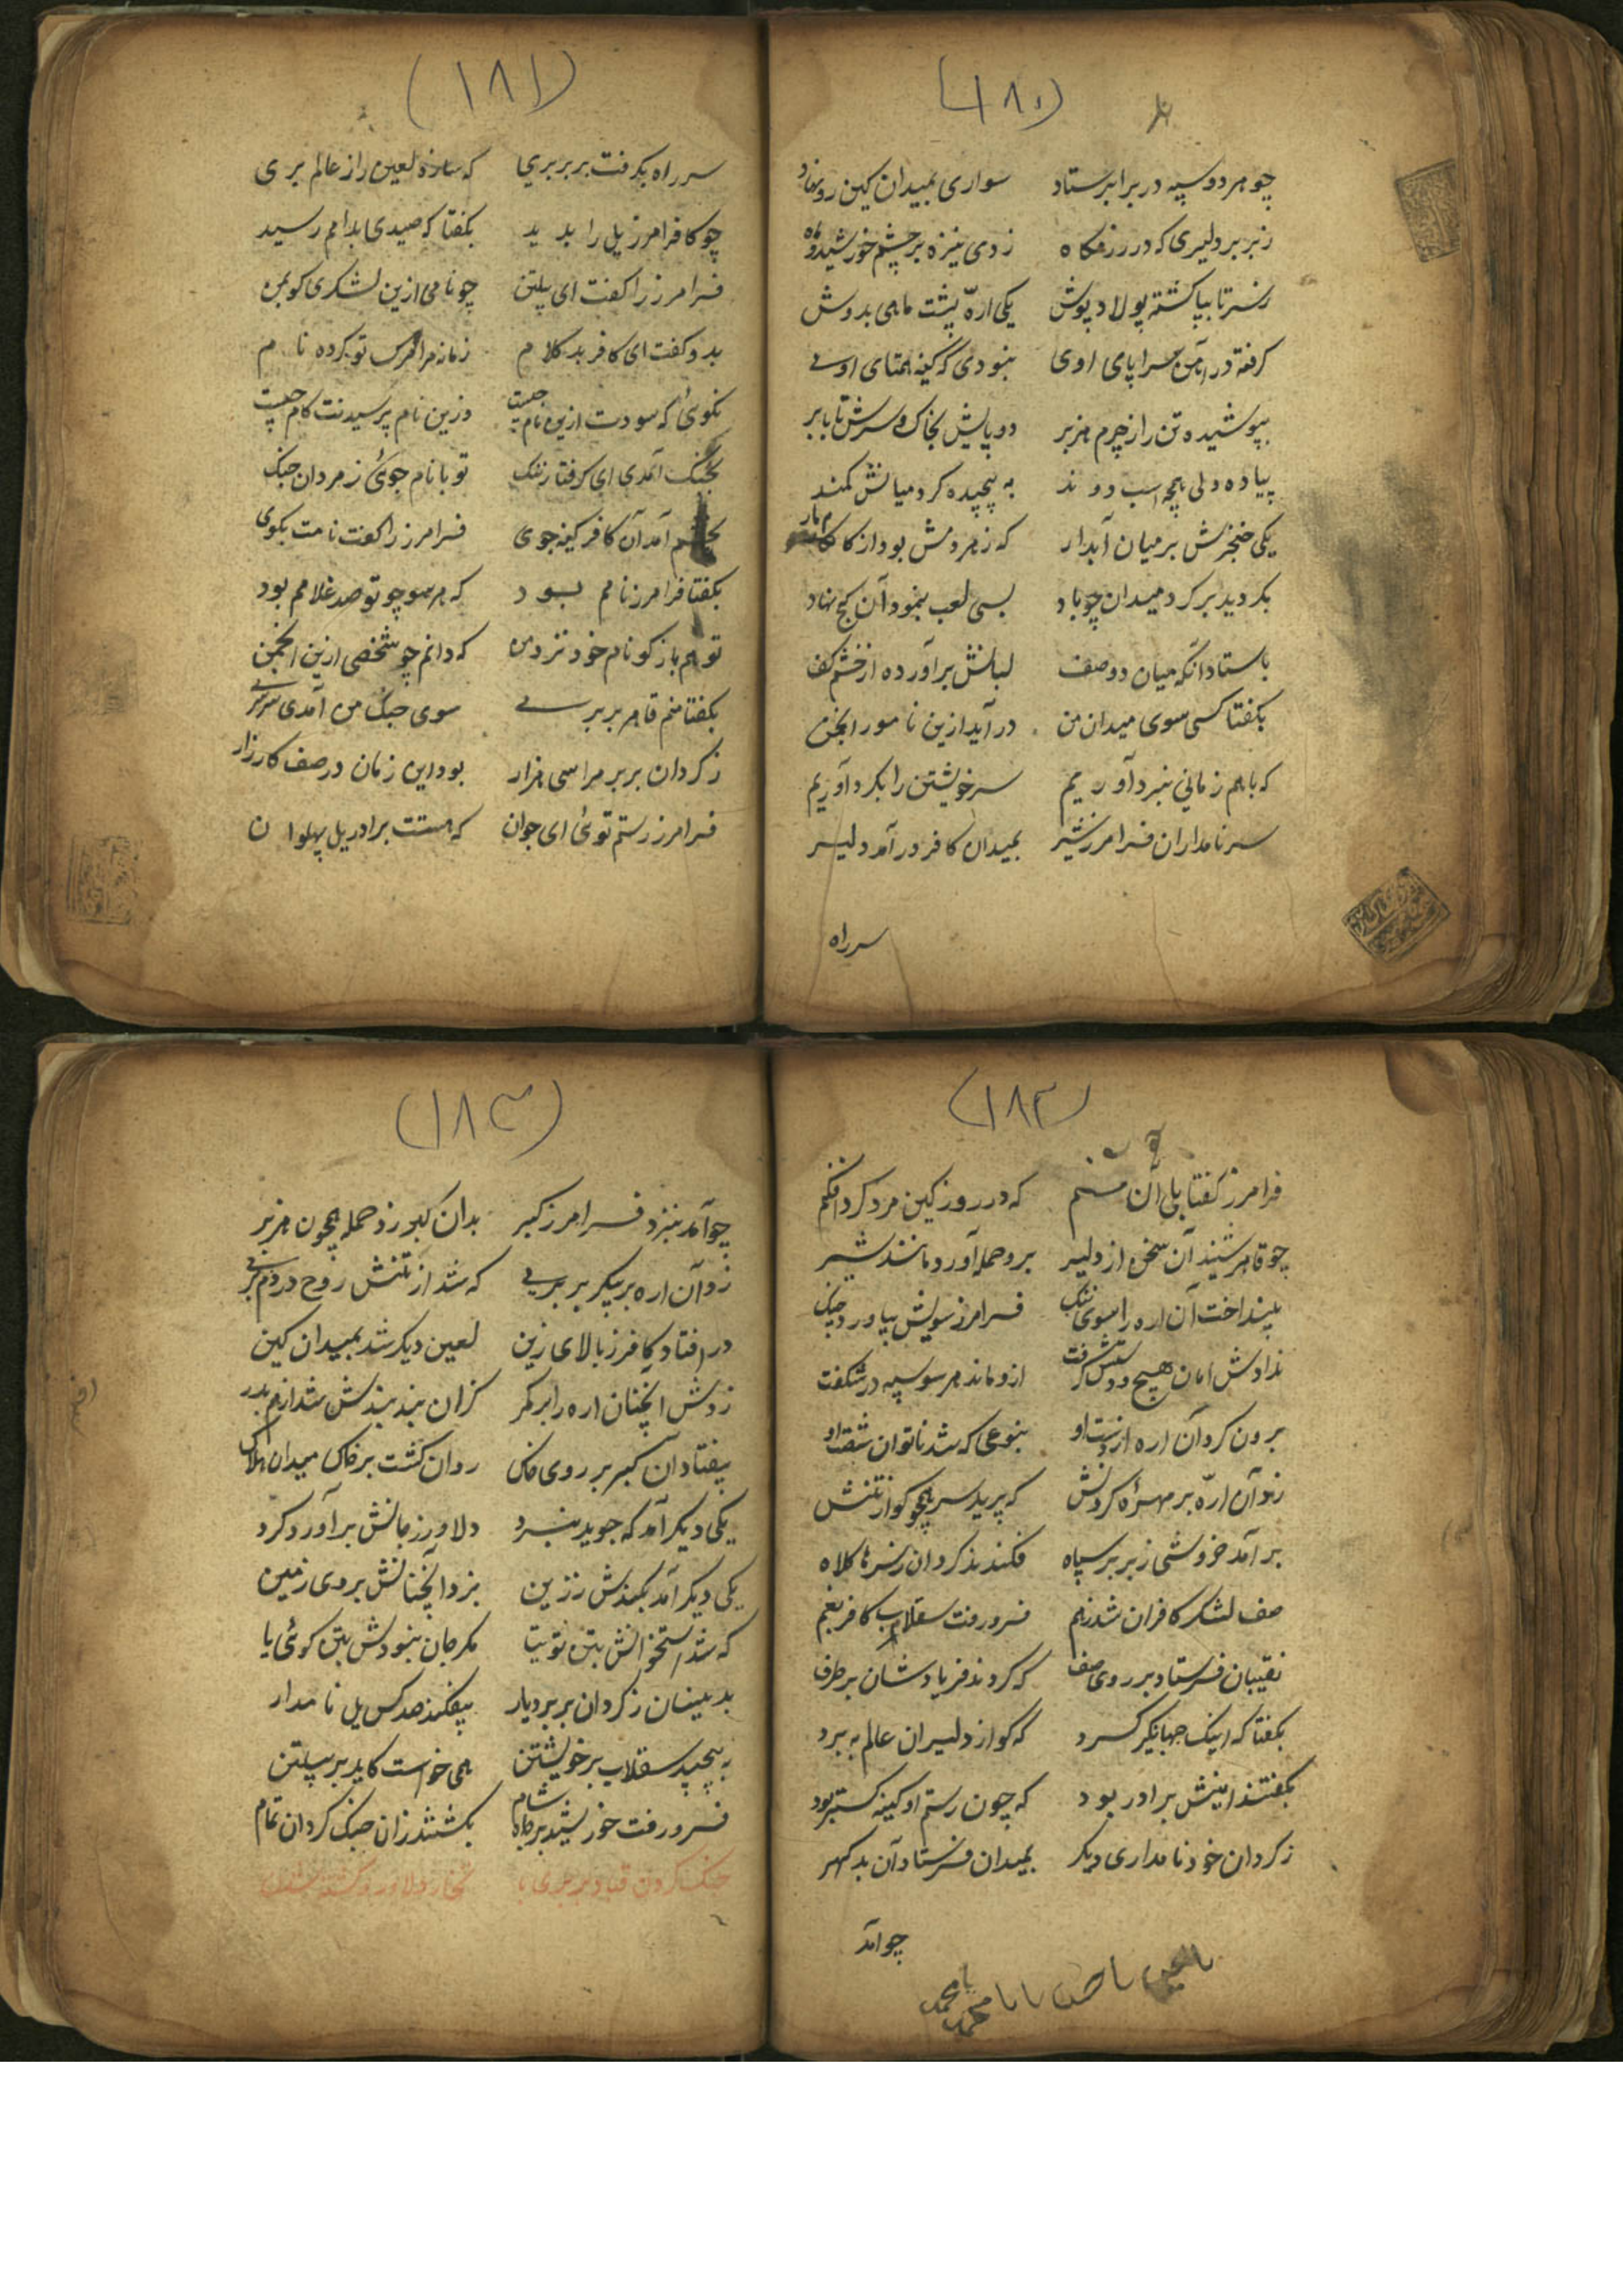 (۱۸۰)
چو هر دو سپه در برابر ستاد سواری بمیدان کین رو نهاد
ز بربر دلیری که در رزمگاه زدی نیزه بر چشم خورشید و ماه
ز سر تا بپا گشته پولاد پوش یکی ارّه پشت ماهی بدوش
گرفته در آهن سراپای اوی نبودی که کینه همتای اوی
بپوشیده تن را ز چرم هزبر دو پایش بخاک و سرش تا بابر
پیاده ولی همچو اسب دوند به پیچیده گرد میانش کمند
یکی خنجرش بر میان آبدار که زهر دمش بود از کام مار
بگردید بر گرد میدان چو باد بسی لعب بنمود آن کج نهاد
باستاد آنگه میان دو صف لبانش برآورده از خشم کف
بگفتا کسی سوی میدان من درآید ازین نامور انجمن
که با هم زمانی نبرد آوریم سر خویشتن را بگرد آوریم
سر نامداران فرامرز شیر بمیدان کافر درآمد دلیر
سر راه
(۱۸۱)
سر راه بگرفت بر بربری که سازد لعین را ز عالم بری
چو کافر فرامرز یل را بدید بگفتا که صیدی بدامم رسید
فرامرز را گفت ای پیلتن چو نامی ازین لشکری گو بمن
بدو گفت ای کافر بد کلام زمانه مرا مرگ تو کرده نام
نگوئی که سودت ازین نام چیست وزین نام پرسیدنت کام چیست
بجنگ آمدی ای گرفتار ننگ تو با نام جوئی ز مردان جنگ
بخشم آمد آن کافر کینه جوی فرامرز را گفت نامت بگوی
بگفتا فرامرز نامم بود که هر سو چو تو صد غلامم بود
تو هم بازگو نام خود نزد من که دانم چو شخصی ازین انجمن
بگفتا منم قاهر بربری سوی جنگ من آمدی سرسری
ز گردان بربر مرا سی هزار بود این زمان در صف کارزار
فرامرز رستم توئی ای جوان که هستت برادر یل پهلوان
(۱۸۲)
فرامرز گفتا بلی آن منم که در روز کین مرد گرد افکنم
چو قاهر شنید آن سخن از دلیر برو حمله آورد مانند شیر
بینداخت آن اره را سوی ننگ فرامرز سویش بیاورد چنگ
ندادش امان هیچ و دستش گرفت ازو ماند هر سو سپه در شگفت
برون کرد آن اره از دست او بنوعی که شد ناتوان شست او
زد آن ارّه بر مهرهٔ گردنش که پرید سر همچو گو از تنش
برآمد خروشی ز بربر سپاه فکندند گردان ز سرها کلاه
صف لشکر کافران شد بهم فرو رفت سقلاب کافر بغم
نقیبان فرستاد بر روی صف که کردند فریادشان بر طرف
بگفتا که اینک جهانگیر کرد که گو از دلیران عالم ببرد
بگفتند اینش برادر بود که چون رستم او کینه گستر بود
ز گردان خود نامداری دیگر بمیدان فرستاد آن بد گهر
چو آمد
یا محمد
(۱۸۳)
چو آمد بنزد فرامرز گبر بدان گبر زد حمله همچون هزبر
زد آن اره بر پیکر بربری که شد از تنش روح در دم بری
در افتاد کافر ز بالای زین لعین دیگر شد بمیدان کین
زدش آنچنان اره را بر کمر کزان بند بندش شد از هم بدر
بیفتاد آن گبر بر روی خاک روان گشت بر خاک میدان هلاک
یکی دیگر آمد که جوید نبرد دلاور ز جانش برآورد گرد
یکی دیگر آمد بکندش ز زین بزد آنچنانش بروی زمین
که شد استخوانش بتن توتیا مگر جان نبودش بتن گوئیا
بدینسان ز گردان بربر دیار بیفکند صد کس یل نامدار
به پیچید سقلاب بر خویشتن همی خواست کاید بر پیلتن
فرو رفت خورشید بر جاه شام بگشتند زان جنگ گردان تمام
جنگ کردن قباد بربری با